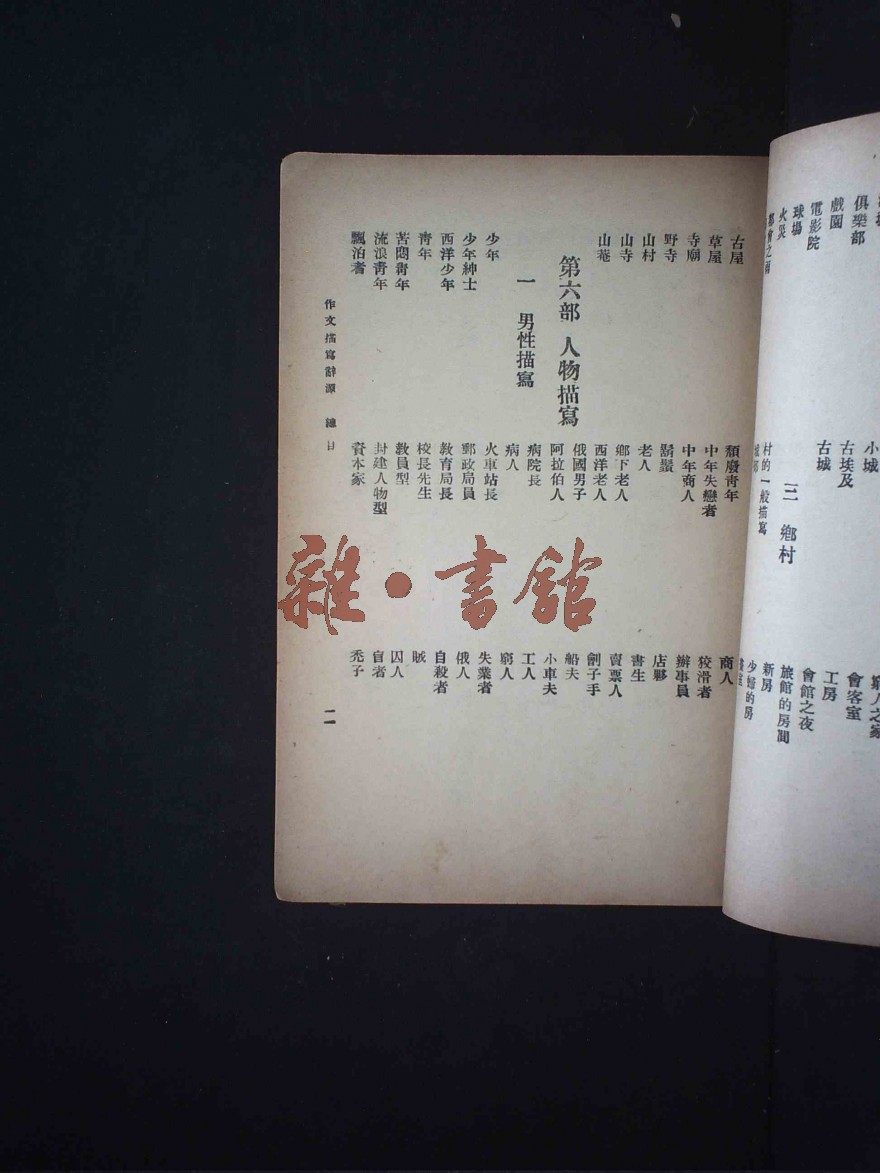 俱樂部
戲園
電影院
球場
火災
都會之雨
小城
古埃及
古城
三 鄉村
村的一般描寫
窮人之家
會客室
工房
會館之夜
旅館的房間
新房
少婦的房
古屋
草屋
寺廟
野寺
山村
山寺
山菴
第六部 人物描寫
一 男性描寫
少年
少年紳士
西洋少年
青年
苦悶青年
流浪青年
飄泊者
頹廢青年
中年失戀者
中年商人
鬍鬚
老人
鄉下老人
西洋老人
俄國男子
阿拉伯人
病院長
病人
火車站長
郵政局員
教育局長
校長先生
教員型
封建人物型
資本家
商人
狡滑者
辦事員
店夥
書生
賣票人
劊子手
船夫
小車夫
工人
窮人
失業者
俄人
自殺者
賊
囚人
盲者
禿子
作文描寫辭源 總目
一一
雜·書館